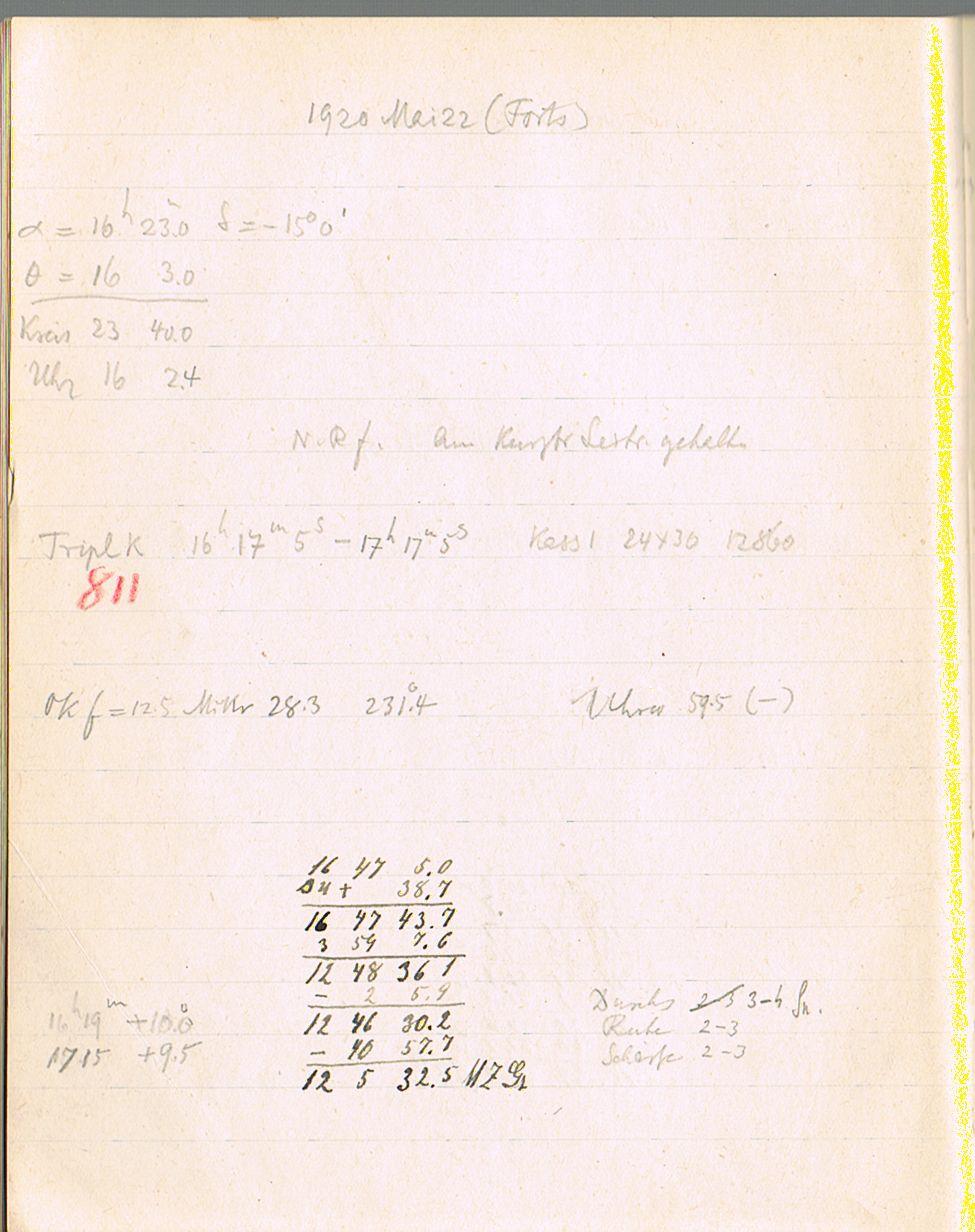 1920 Mai 22 (Forts)
α = 16ʰ 23.0ᵐ δ = -15° 0'
θ = 16 3.0
Kreis 23 40.0
Uhr 16 2.4
N. R f. Am gehalten
Tripl K 16ʰ 17ᵐ 5ˢ - 17ʰ 17ᵐ 5ˢ Kass 1 24x30 12860
811
OK f = 12.5 Mikr 28.3 231.4° Uhren 59.5 (-)
16 47 5.0
Δu + 38.7
16 47 43.7
3 59 7.6
12 48 36 1
- 2 5.9
12 46 30.2
- 40 57.7
12 5 32.5 MZGr
16ʰ19ᵐ +10.0°
17 15 +9.5
Durchs 2-3 3-4
Ruhe 2-3
Schärfe 2-3